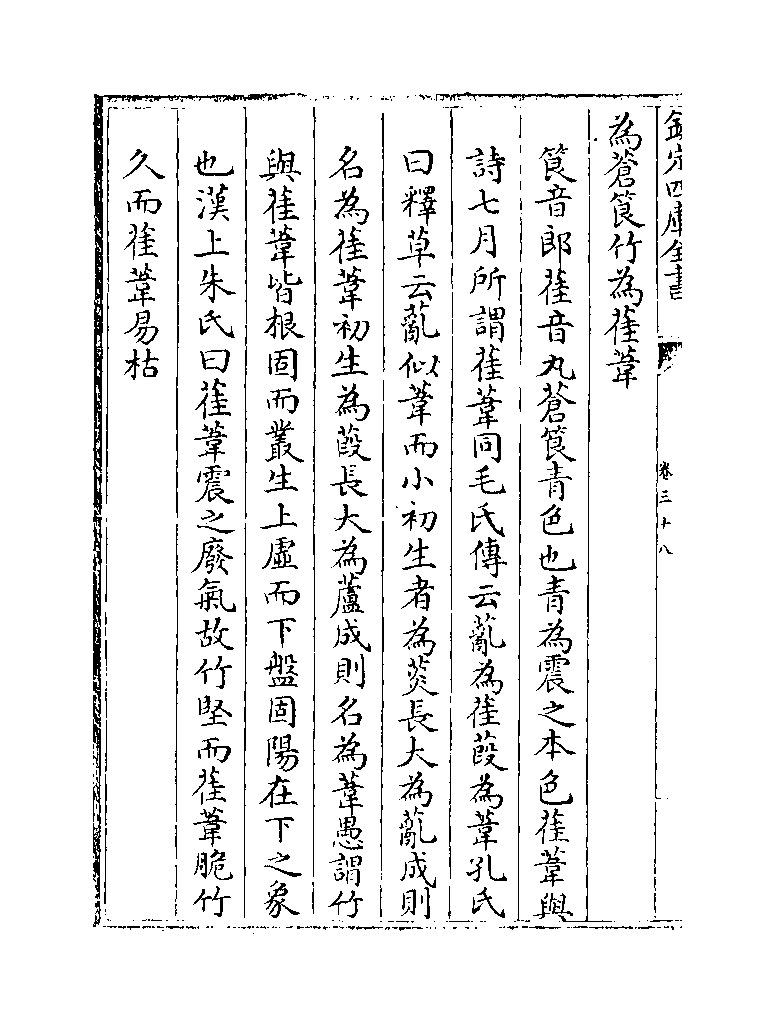 欽定四庫全書
卷三十八
為蒼筤竹為萑葦
筤音郎萑音丸蒼筤青色也青為震之本色萑葦與
詩七月所謂萑葦同毛氏傳云薍為萑葭為葦孔氏
曰釋草云薍似葦而小初生者為菼長大為薍成則
名為萑葦初生為葭長大為蘆成則名為葦愚謂竹
與萑葦皆根固而叢生上虛而下盤固陽在下之象
也漢上朱氏曰萑葦震之廢氣故竹堅而萑葦脆竹
久而萑葦易枯